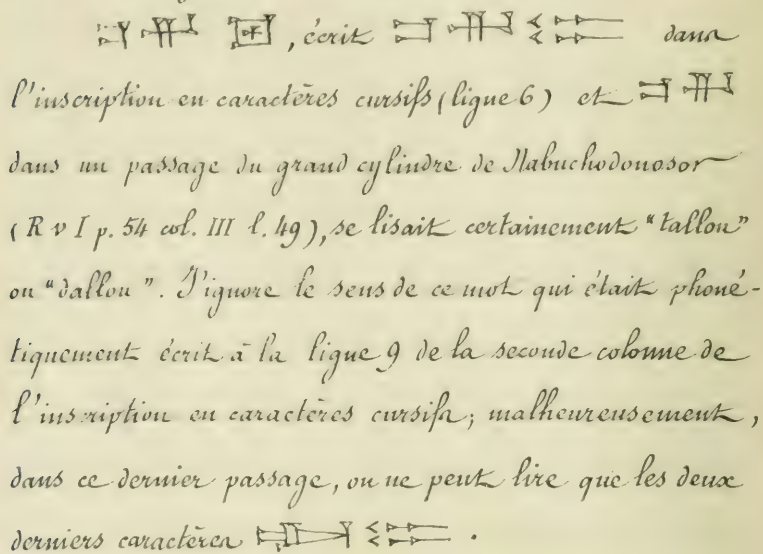 , écrit dans
l'inscription en caractères cursifs (ligne 6) et
dans un passage du grand cylindre de Nabuchodonosor
(R v I p. 54 col. III l. 49), se lisait certainement "tallou"
ou "dallou". J'ignore le sens de ce mot qui était phoné-
tiquement écrit à la ligne 9 de la seconde colonne de
l'inscription en caractères cursifs; malheureusement,
dans ce dernier passage, on ne peut lire que les deux
derniers caractères .